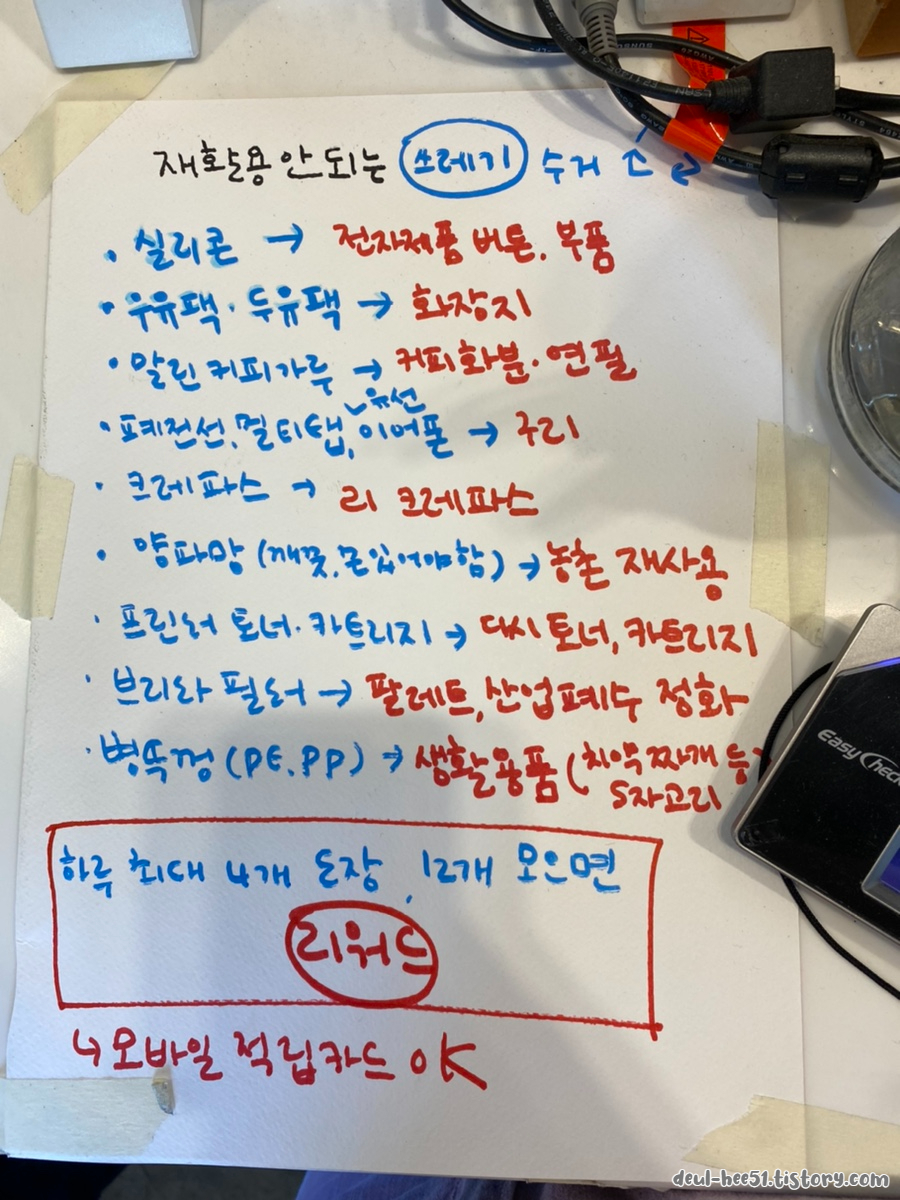 재활용 안 되는 쓰레기 수거
· 실리콘 → 전자제품 버튼, 부품
· 우유팩 · 두유팩 → 화장지
· 말린 커피가루 → 커피화분 · 연필
유선
· 폐전선, 멀티탭, 이어폰 → 구리
· 크레파스 → 리 크레파스
· 양파망 (깨끗, 끈 있어야함) → 농촌 재사용
· 프린터 토너 · 카트리지 → 다시 토너, 카트리지
· 브리타 필터 → 팔레트, 산업폐수 정화
· 병뚜껑 (PE, PP) → 생활용품 (치약짜개 등
S자고리
하루 최대 4개 도장, 12개 모으면
리워드
↳ 모바일 적립카드 OK
EasyCheck
deul-hee51.tistory.com